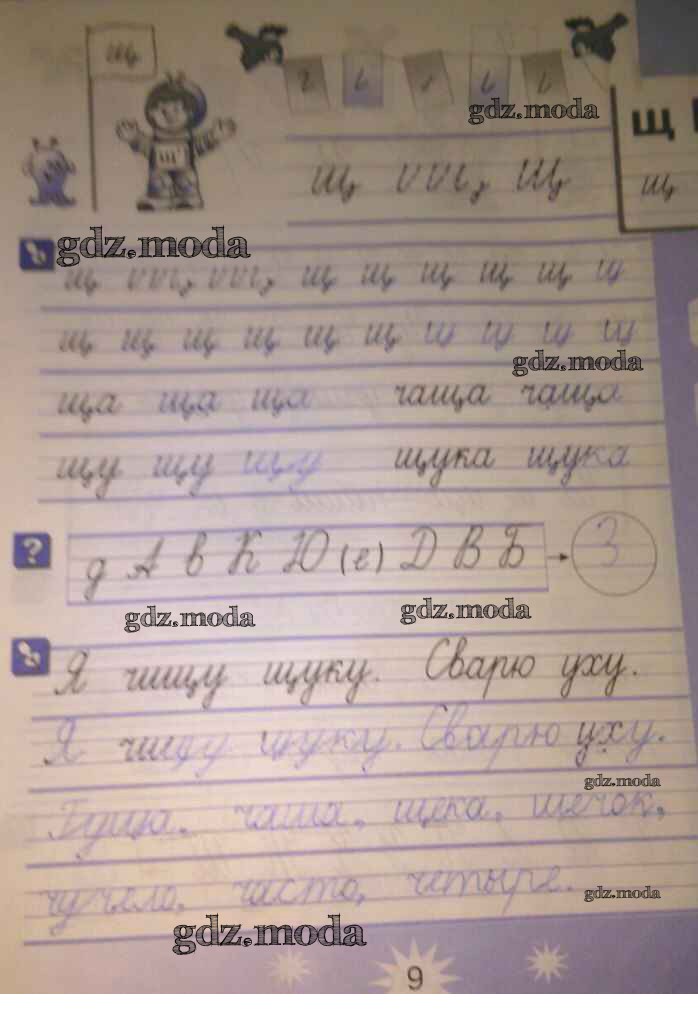 щ
gdz.moda
Щ
щ
щ
щ Щ
gdz.moda
щ щ щ щ щ щ
щ щ щ щ щ щ
gdz.moda
ща ща ща чаща чаща
щу щу щу щука щука
?
д А в К Ю (е) Д В Б З
gdz.moda gdz.moda
Я чищу щуку. Сварю уху.
Я чищу щуку. Сварю уху.
gdz.moda
чаща, щека, щечок,
чучело, часто, четыре.
gdz.moda
gdz.moda
9